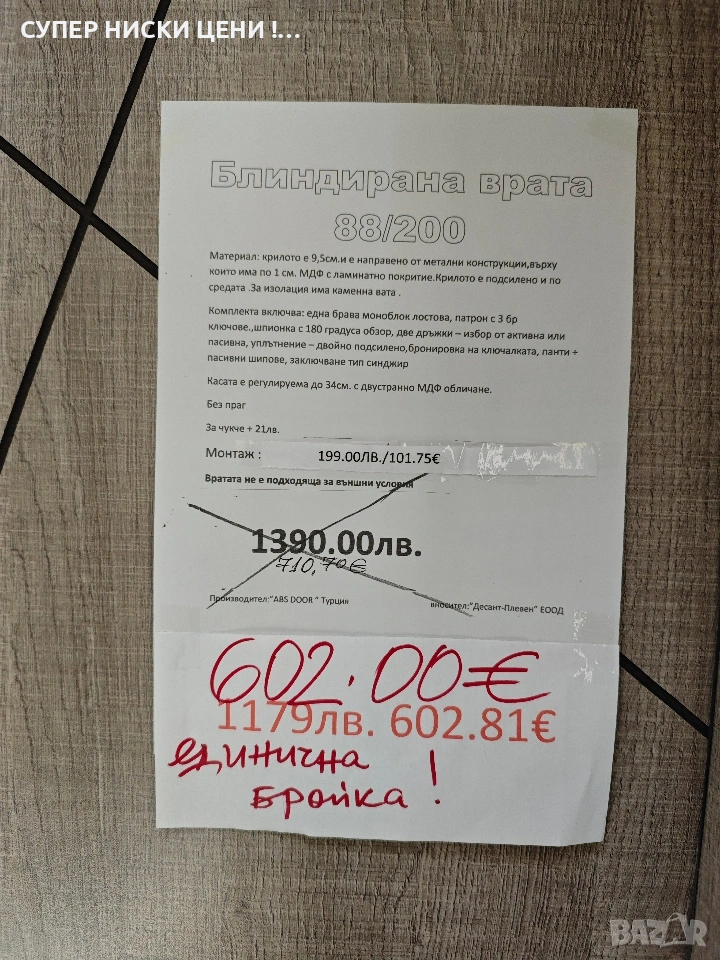 СУПЕР НИСКИ ЦЕНИ !...
Блиндирана врата
88/200
Материал: крилото е 9,5см.и е направено от метални конструкции,върху
които има по 1 см. МДФ с ламинатно покритие.Крилото е подсилено и по
средата .За изолация има каменна вата .
Комплекта включва: една брава моноблок лостова, патрон с 3 бр
ключове.,шпионка с 180 градуса обзор, две дръжки – избор от активна или
пасивна, уплътнение – двойно подсилено,бронировка на ключалката, панти +
пасивни шипове, заключване тип синджир
Касата е регулируема до 34см. с двустранно МДФ обличане.
Без праг
За чукче + 21лв.
Монтаж : 199.00ЛВ./101.75€
Вратата не е подходяща за външни условия
1390.00лв.
710,70€
Производител:"ABS DOOR " Турция вносител:"Десант-Плевен" ЕООД
602.00€
1179лв. 602.81€
единична
бройка !
BAZAR